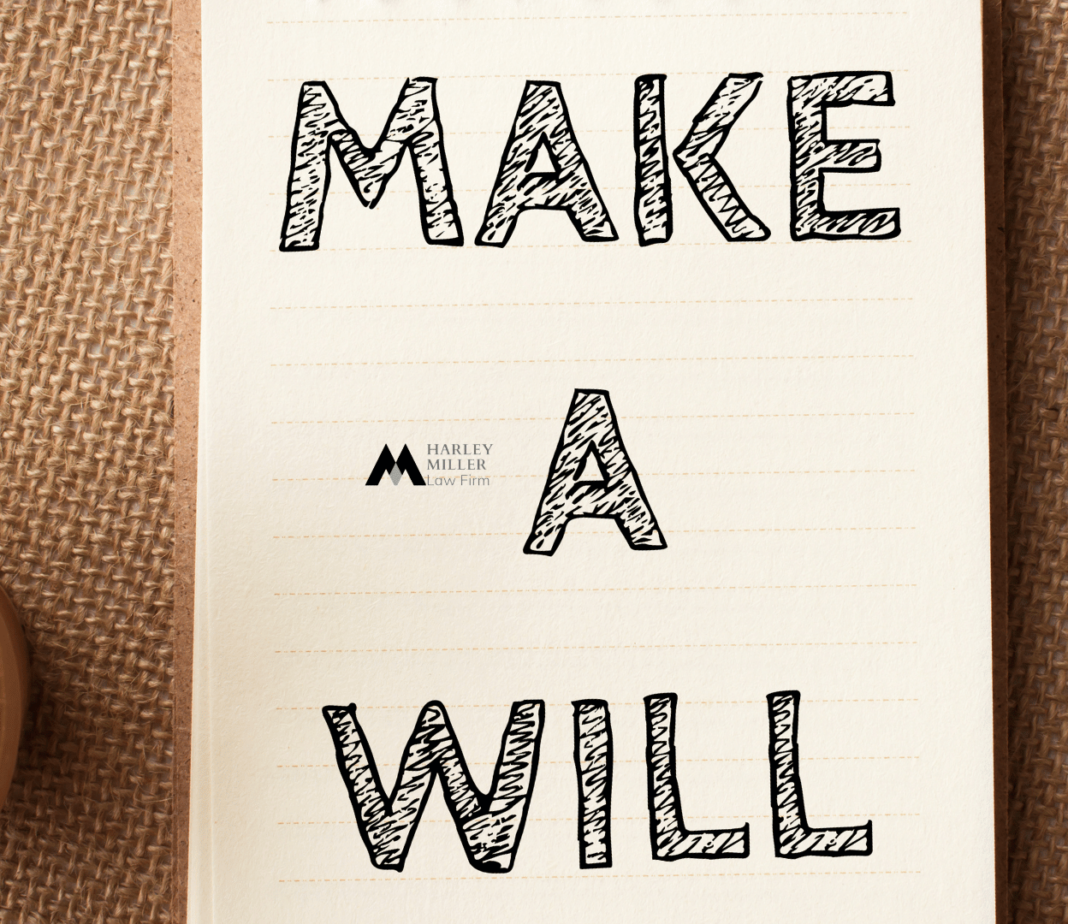 MAKE
HARLEY
MILLER
Law Firm
A
WILL